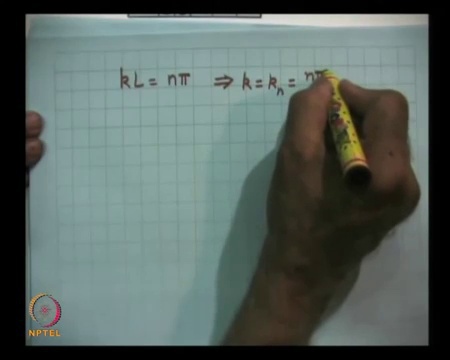 kL = nπ ⇒ k = kₙ = nπ
NPTEL